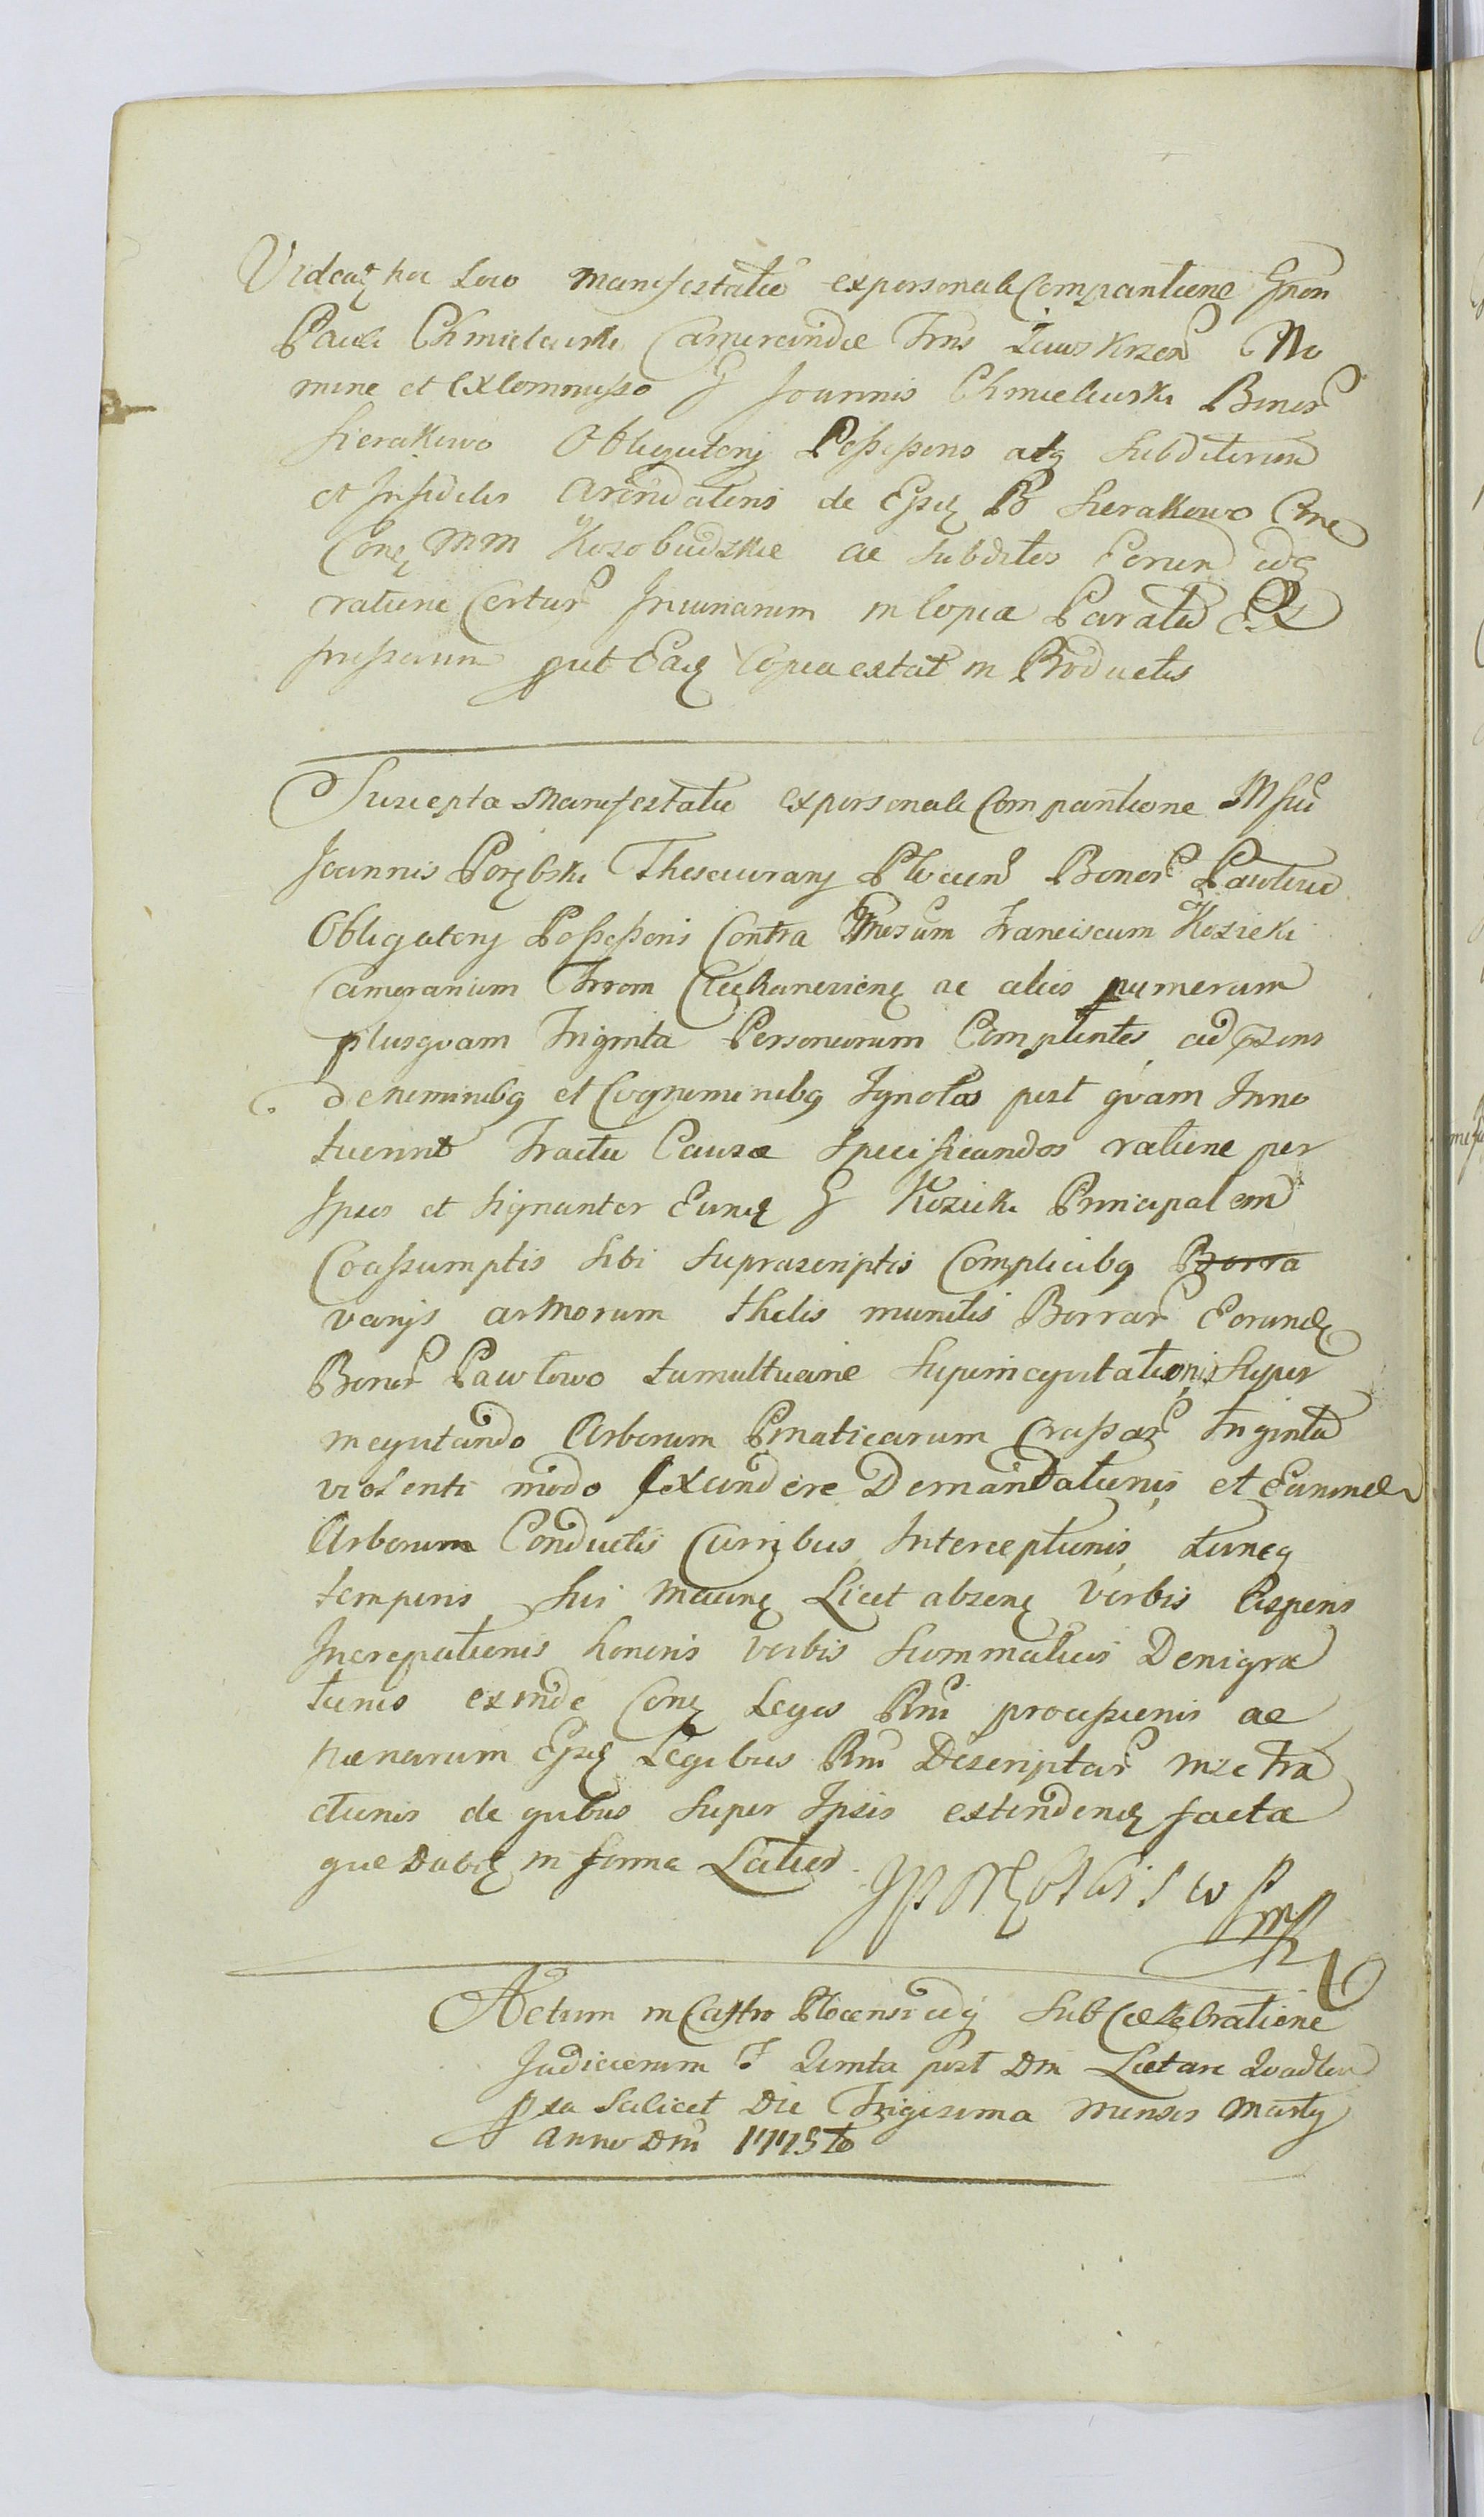 Videatz hoc Loco Manifestatio ex personali Comparitione Gnen
Pauli Chmielewski Cameraridae Trns Zawskrzen No
mine et Ex Commisso G Joannis Chmielewski Bonor
Sierakowo Obligatorij Possessoris atq Subditorum
et Infidelis Arendatoris de Ejsd B Sierakowo
Contra MM Kozobudzkie ac Subditos Eorund idq
ratione Certar Injuriarum in Copia Paratu Ex
pressarum put Eadz Copia extat in Productis
Suscepta Manifestatio ex personali Comparitione Msui
Joannis Porębski Thesaurarij Plocen Bonor Pawłowo
Obligatorij Possessoris Contra Gnosum Franciscum Kozicki
Camerarium Trrom Ciechanoviens ac alios numerum
plusquam Triginta Personarum Complentes ad psens
de nominibq et Cognominibq Ignotos post quam Inno
tuerint Tractu Causae Specificandos ratione per
Ipsos et Signanter Eund G Kozicki Principalem
Coassumptis Sibi Suprascriptis Complicibq Borra
varijs armorum thelis munitis Borrar Eorundz
Bonor Pawłowo tumultuarie Superinequitationis Super
inequitando Arborum Pinaticarum Crassar Triginta
violenti modo Excindere Demandationis et Earundz
Arborum Conductis Curribus Interceptionis tuncq
temporis Sui Licet absens Verbis Asperis
Increpationis honoris Verbis Summaticis Denigra
tionis exinde Cont Leges Rni processionis ac
paenarum Ejsd Legibus Rni Descriptar
ctionis de quibus Super Ipsis extendend facta
que Dabiz in forma Latior
Actum in Castro Plocensi idq Sub Caelebratione
Judiciorum F Quinta post Dm Laetare Quadra
psa Scilicet Die Trigesima Mensis Martij
Anno Dni 1775to